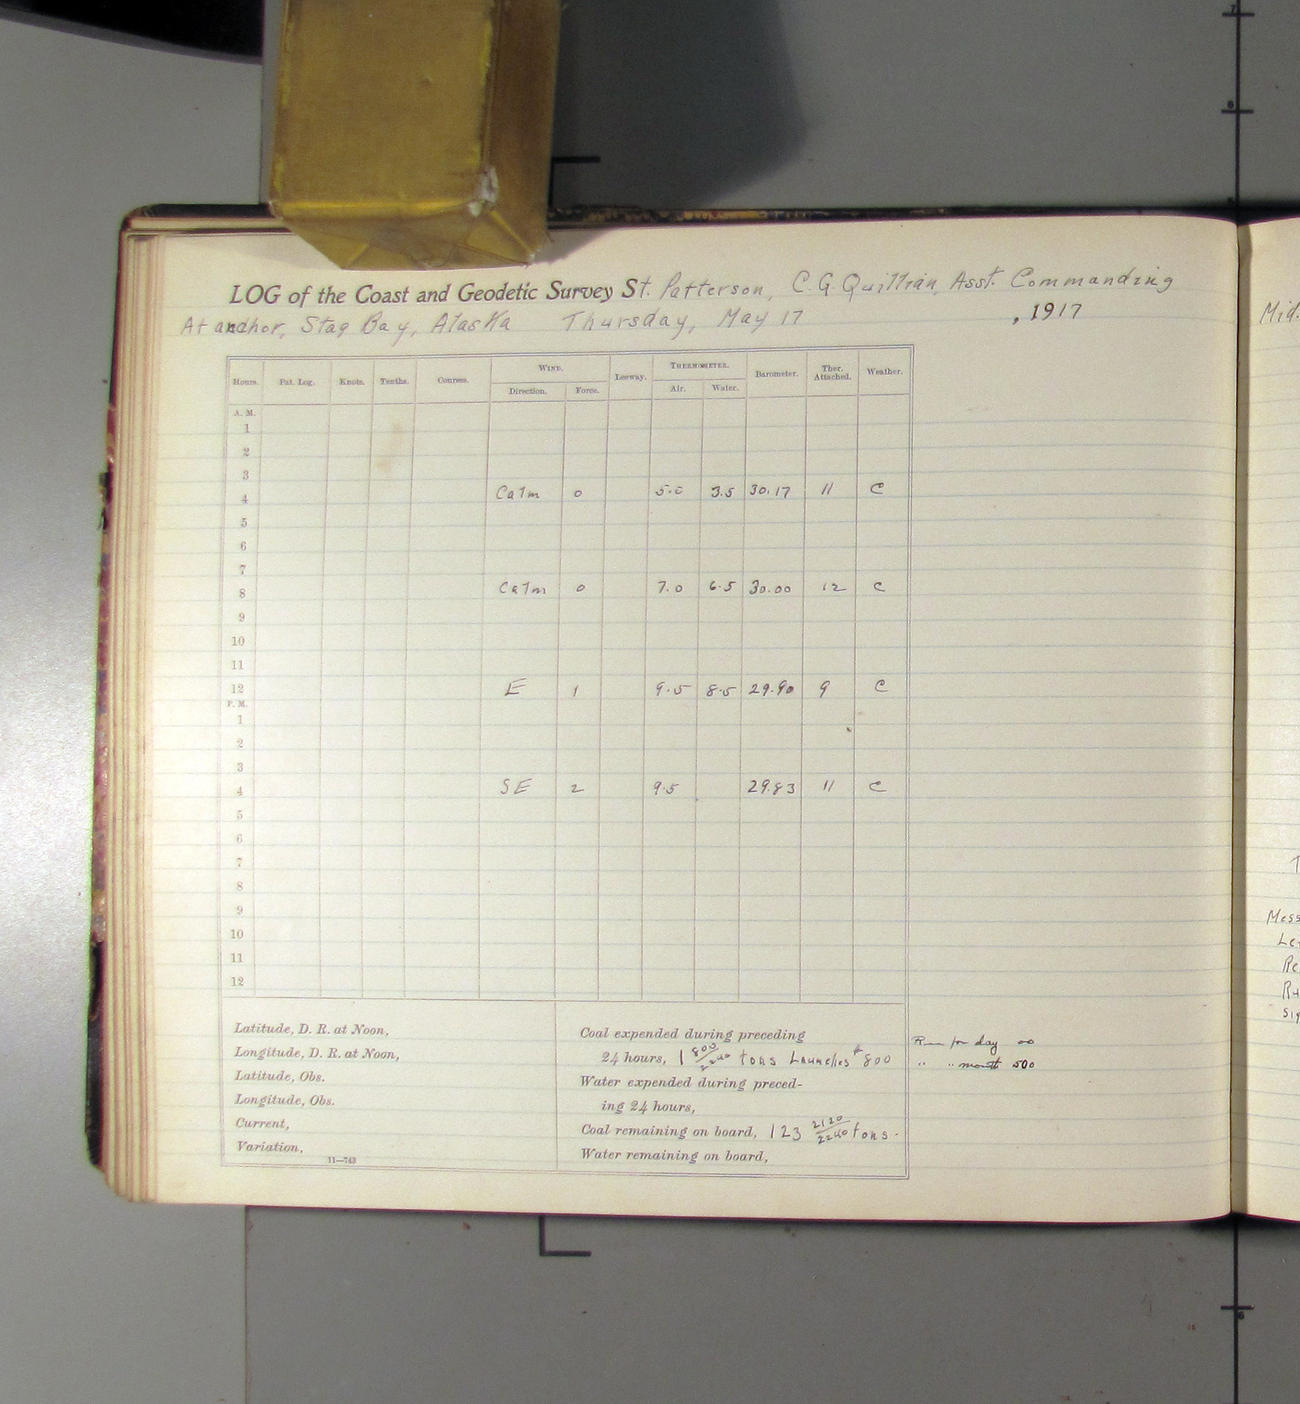 LOG of the Coast and Geodetic Survey St. Patterson, C. G. Quillian, Asst. Commanding
At anchor, Stag Bay, Alaska Thursday, May 17, 1917
Hours. Pat. Log. Knots. Tenths. Courses. WIND. Leeway. THERMOMETER. Barometer. Ther. Attached. Weather.
Direction. Force. Air. Water.
A. M.
1
2
3
4 Calm 0 5.0 3.5 30.17 11 C
5
6
7
8 Calm 0 7.0 6.5 30.00 12 C
9
10
11
12 E 1 9.5 8.5 29.90 9 C
P. M.
1
2
3
4 SE 2 9.5 29.83 11 C
5
6
7
8
9
10
11
12
Latitude, D. R. at Noon,
Longitude, D. R. at Noon,
Latitude, Obs.
Longitude, Obs.
Current,
Variation,
11—743
Coal expended during preceding
24 hours, 1 800/2240 tons Launches # 800
Water expended during preced-
ing 24 hours,
Coal remaining on board, 123 2120/2240 tons.
Water remaining on board,
Run for day 00
" " month 500
Mid.
Mess